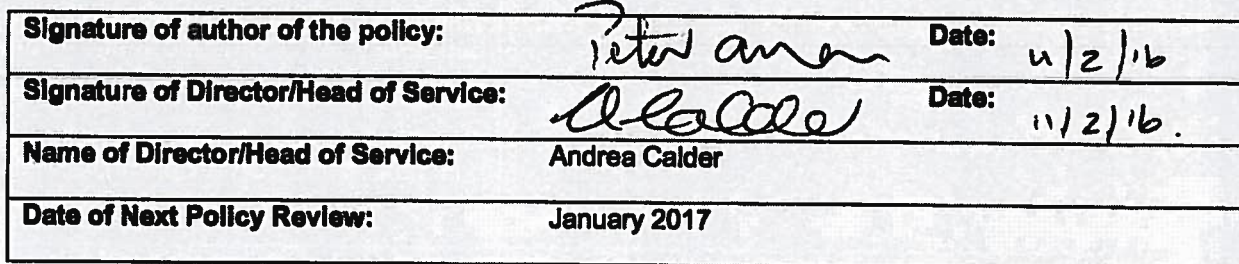 Signature of author of the policy: Peter Date: 11/2/16
Signature of Director/Head of Service: Date: 11/2/16.
Name of Director/Head of Service: Andrea Calder
Date of Next Policy Review: January 2017